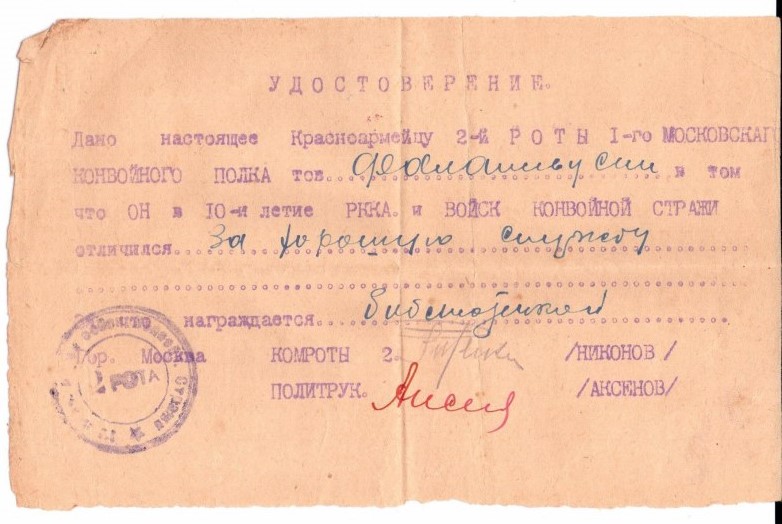 УДОСТОВЕРЕНИЕ.
Дано настоящее Красноармейцу 2-й РОТЫ I-го МОСКОВСКАГ
КОНВОЙНОГО ПОЛКА тов. в том
что ОН в 10-и летие РККА. и ВОЙСК КОНВОЙНОЙ СТРАЖИ
отличился за хорошую службу
За что награждается библиотекой
гор. Москва КОМРОТЫ 2. /НИКОНОВ/
ПОЛИТРУК. Аксенов /АКСЕНОВ/
2 РОТА
СТРАЖИ